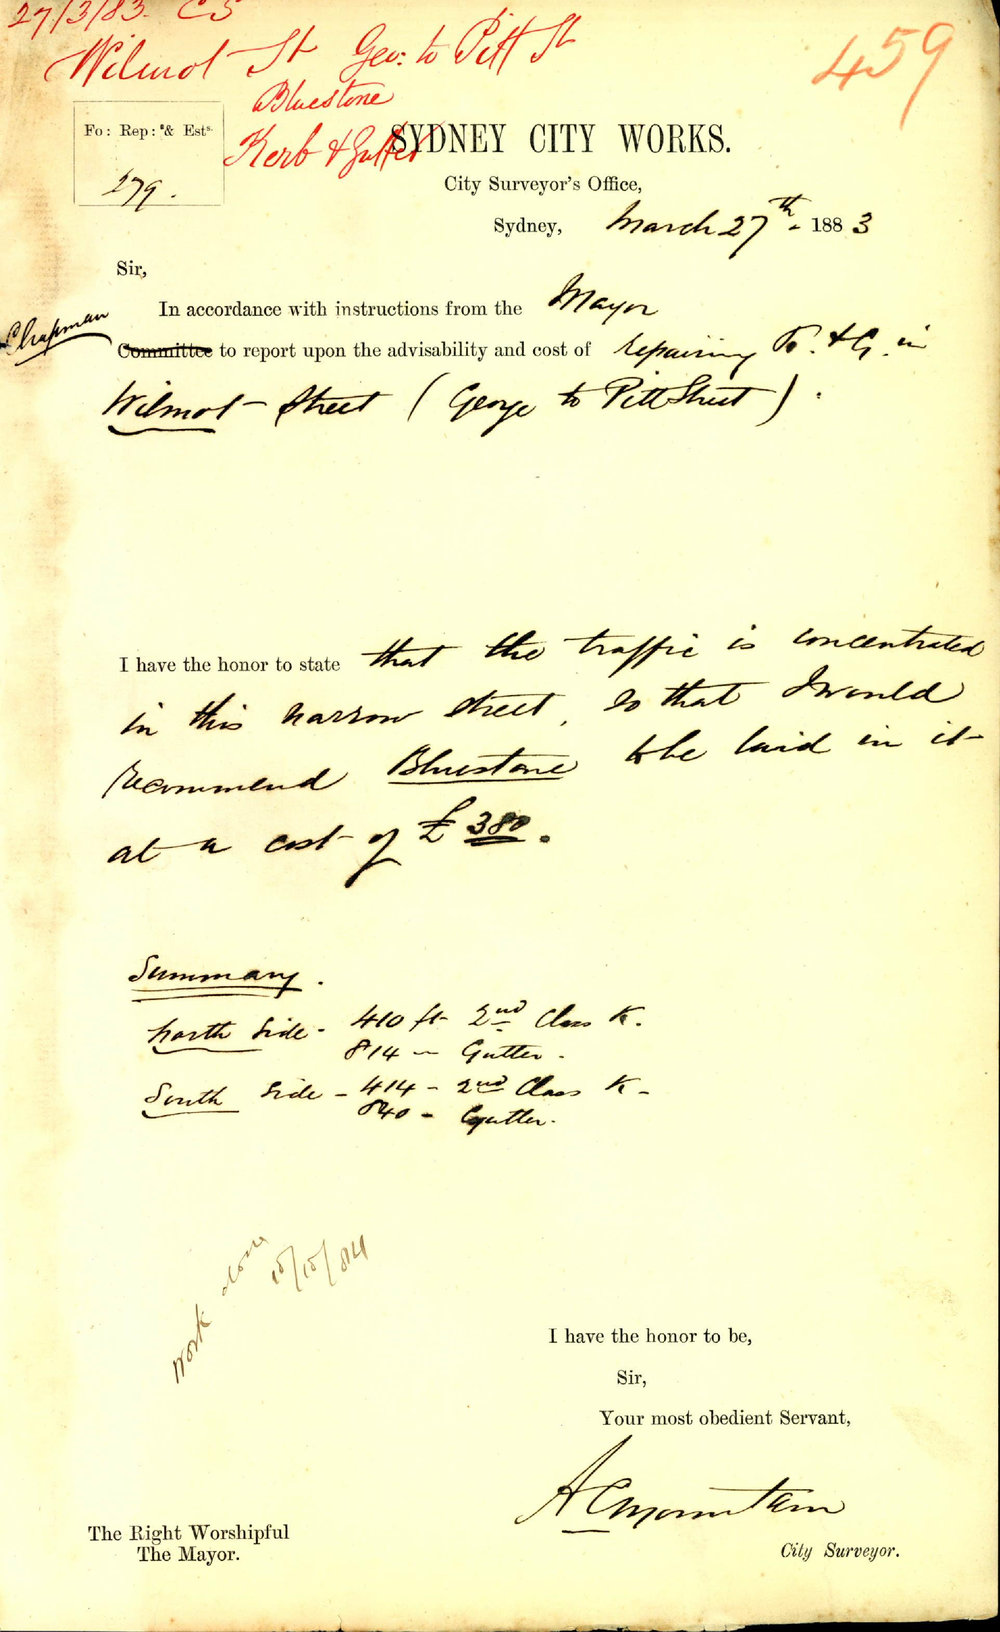 27/3/83. CS
Wilmot St Geo: to Pitt St
459
Bluestone
Kerb & Gutter
Fo: Rep: s & Ests.
279.
SYDNEY CITY WORKS.
City Surveyor's Office,
Sydney, March 27th. 1883
Sir,
In accordance with instructions from the Mayor
Chapman
Committee to report upon the advisability and cost of repairing K. & G. in
Wilmot Street (George to Pitt Street).
I have the honor to state that the traffic is concentrated
in this narrow street, so that I would
recommend Bluestone to be laid in it
at a cost of £380.
Summary.
North Side - 410 ft 2nd Class K.
814 - Gutter.
South Side - 414 - 2nd Class K -
840 - Gutter.
Work done
I have the honor to be,
Sir,
Your most obedient Servant,
A C Mountain
City Surveyor.
The Right Worshipful
The Mayor.